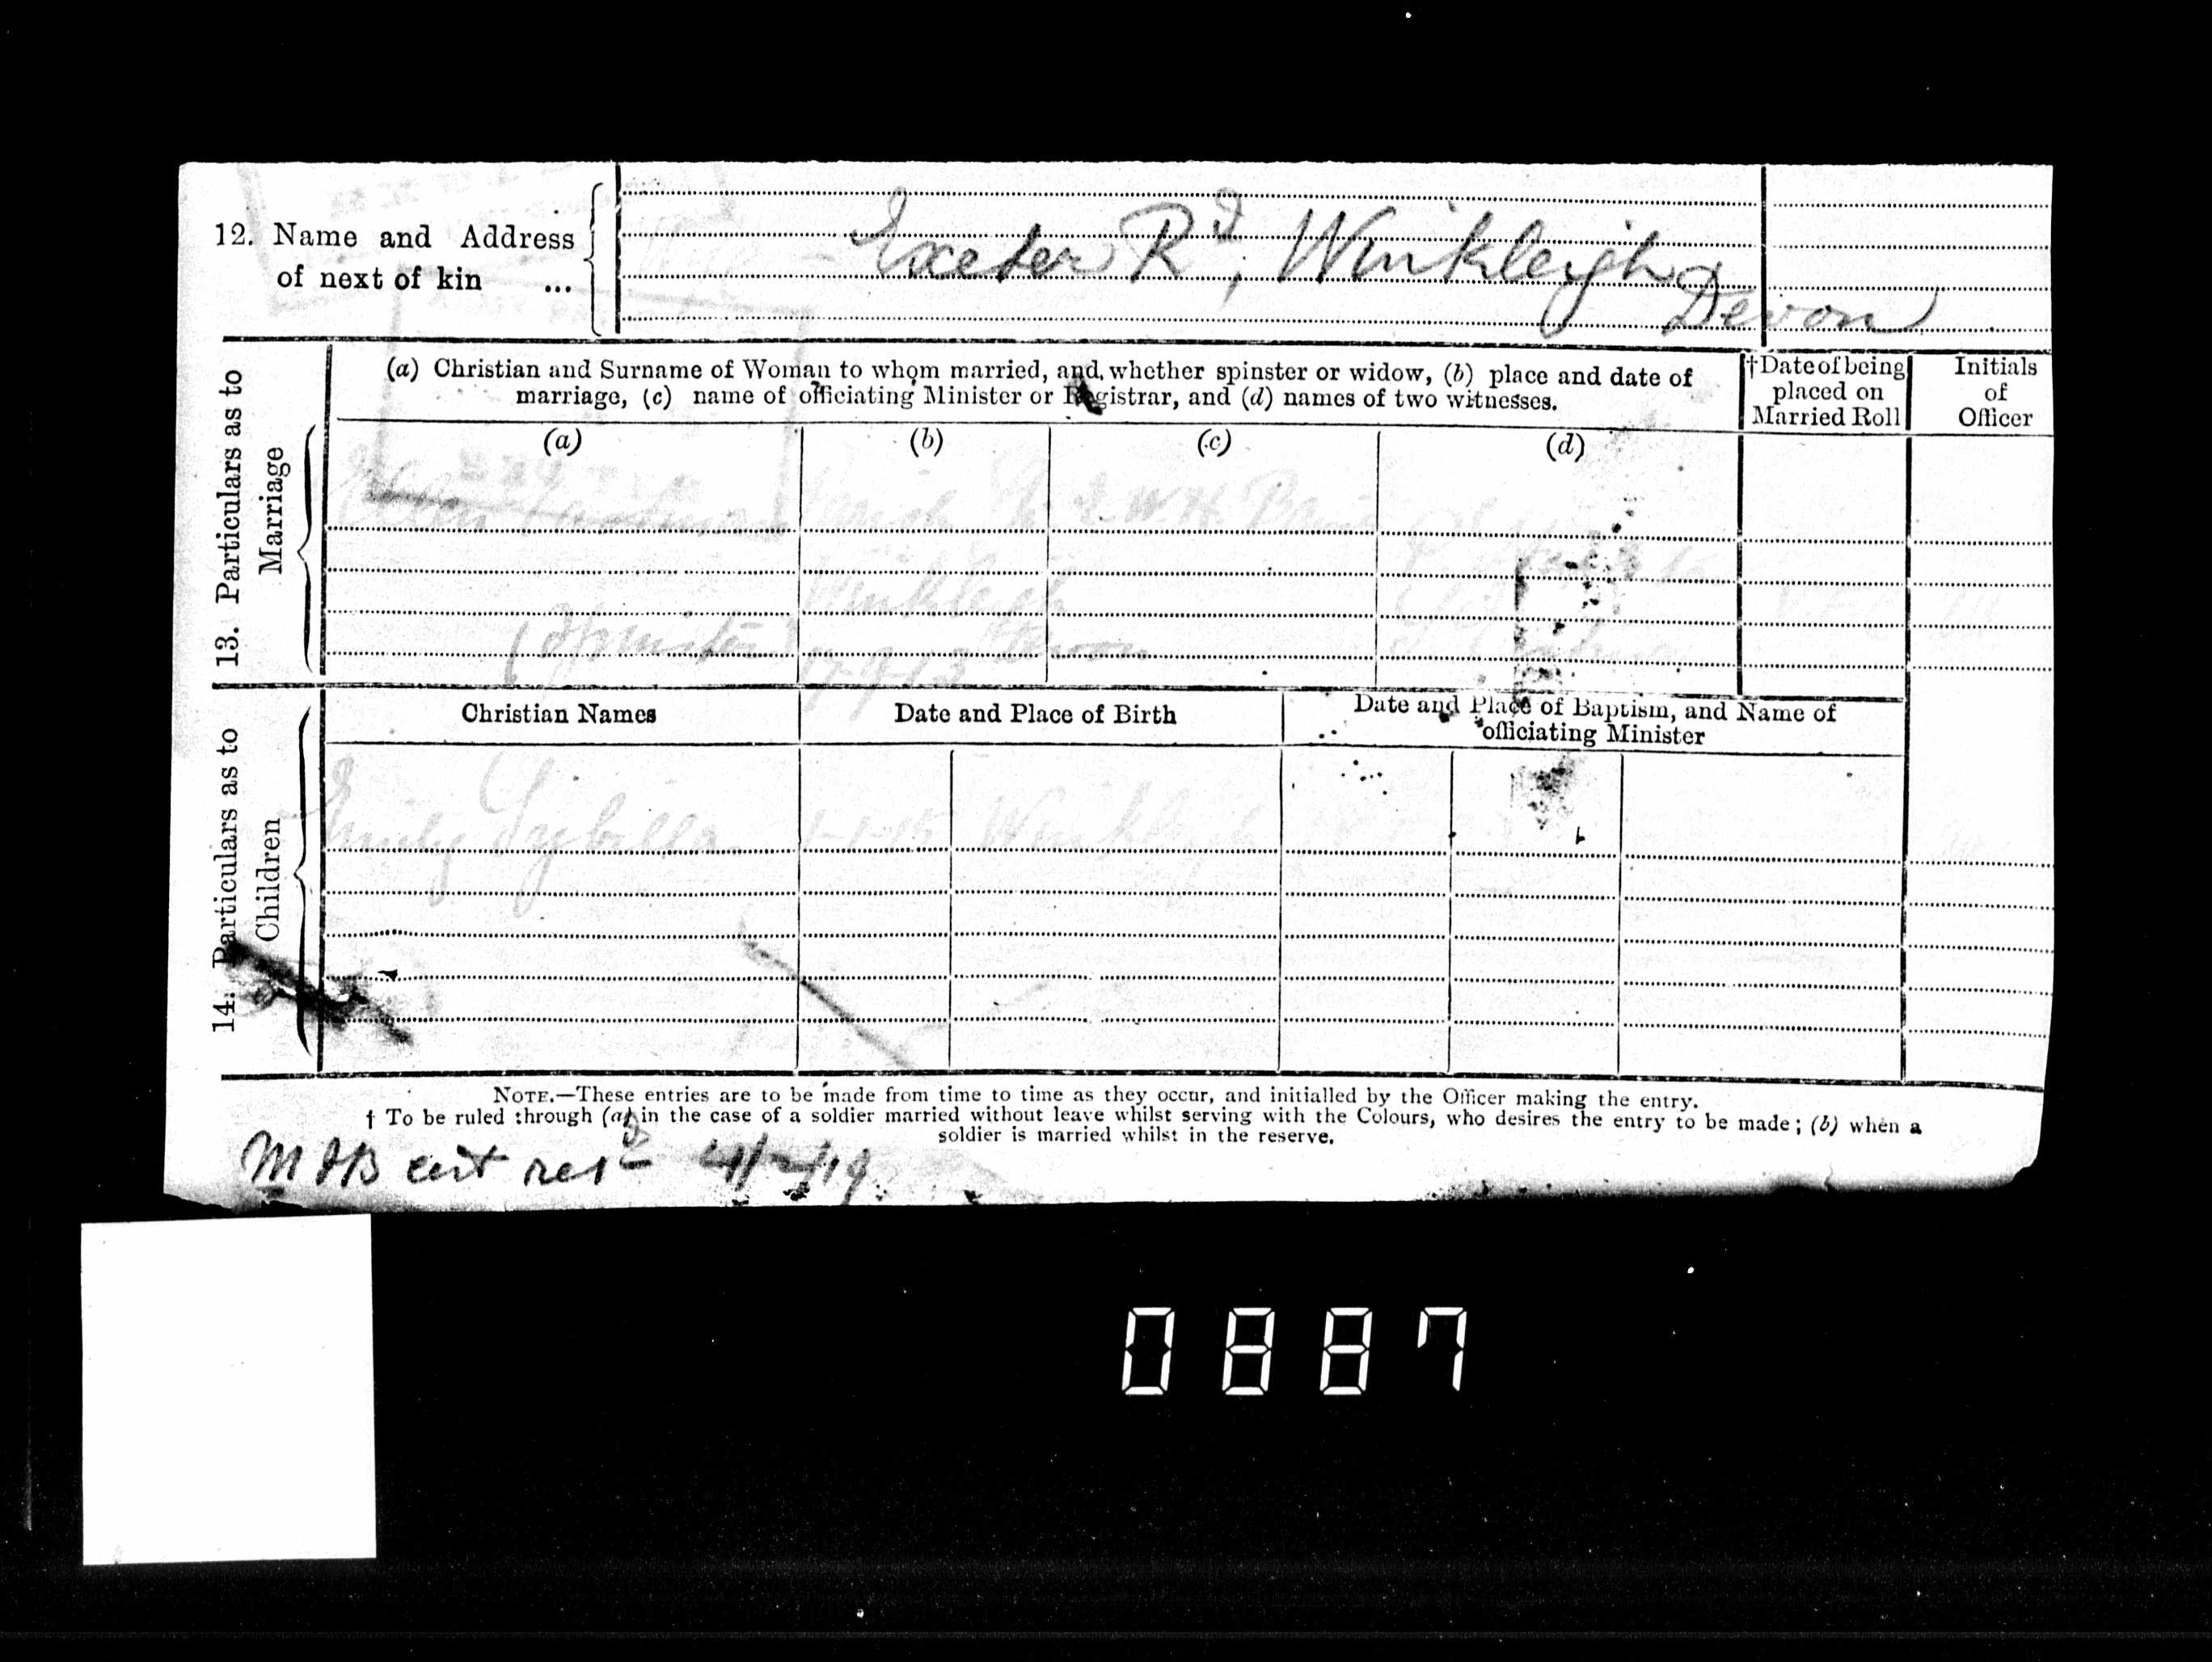 12. Name and Address
of next of kin ...
Exeter Rd, Winkleigh
Devon
13. Particulars as to
Marriage
(a) Christian and Surname of Woman to whom married, and, whether spinster or widow, (b) place and date of
marriage, (c) name of officiating Minister or Registrar, and (d) names of two witnesses.
†Date of being
placed on
Married Roll
Initials
of
Officer
(a) (b) (c) (d)
W H
Winkleigh
(Spinster) Devon
17-9-13
14. Particulars as to
Children
Christian Names
Date and Place of Birth
Date and Place of Baptism, and Name of
officiating Minister
Emily Sybilla Winkleigh
NOTE.—These entries are to be made from time to time as they occur, and initialled by the Officer making the entry.
† To be ruled through (a) in the case of a soldier married without leave whilst serving with the Colours, who desires the entry to be made; (b) when a
soldier is married whilst in the reserve.
M & B cert retd
0887